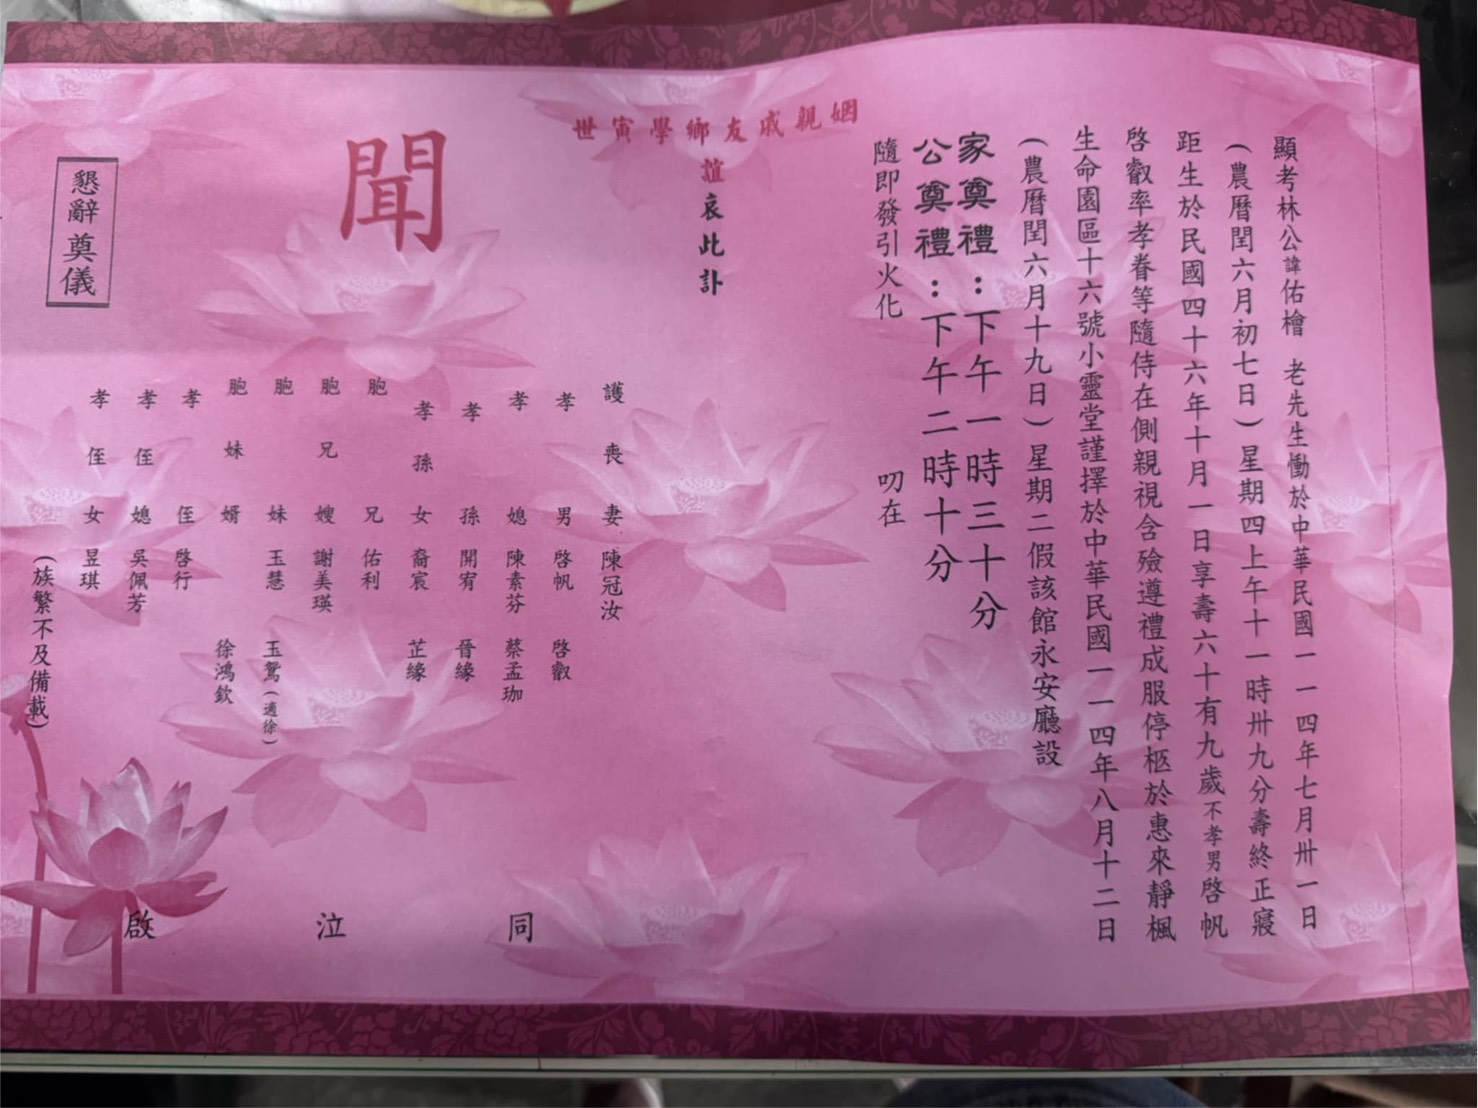 顯考林公諱佑檜 老先生慟於中華民國一一四年七月卅一日
(農曆閏六月初七日)星期四上午十一時卅九分壽終正寢
距生於民國四十六年十月一日享壽六十有九歲不孝男啓帆
啓叡率孝眷等隨侍在側親視含殮遵禮成服停柩於惠來靜楓
生命園區十六號小靈堂謹擇於中華民國一一四年八月十二日
(農曆閏六月十九日)星期二假該館永安廳設
家奠禮:下午一時三十分
公奠禮:下午二時十分
隨即發引火化 叨在
姻親戚友鄉學寅世
誼哀此訃
聞
護喪妻陳冠汝
孝男啓帆 啓叡
孝媳陳素芬 蔡孟珈
孝孫開宥 晉緣
孝孫女裔宸 芷緣
胞兄佑利
胞兄嫂謝美瑛
胞妹玉慧 玉鴛(適徐)
胞妹婿 徐鴻欽
孝侄啓行
孝侄媳吳佩芳
孝侄女昱琪
(族繁不及備載)
同泣啟
懇辭奠儀